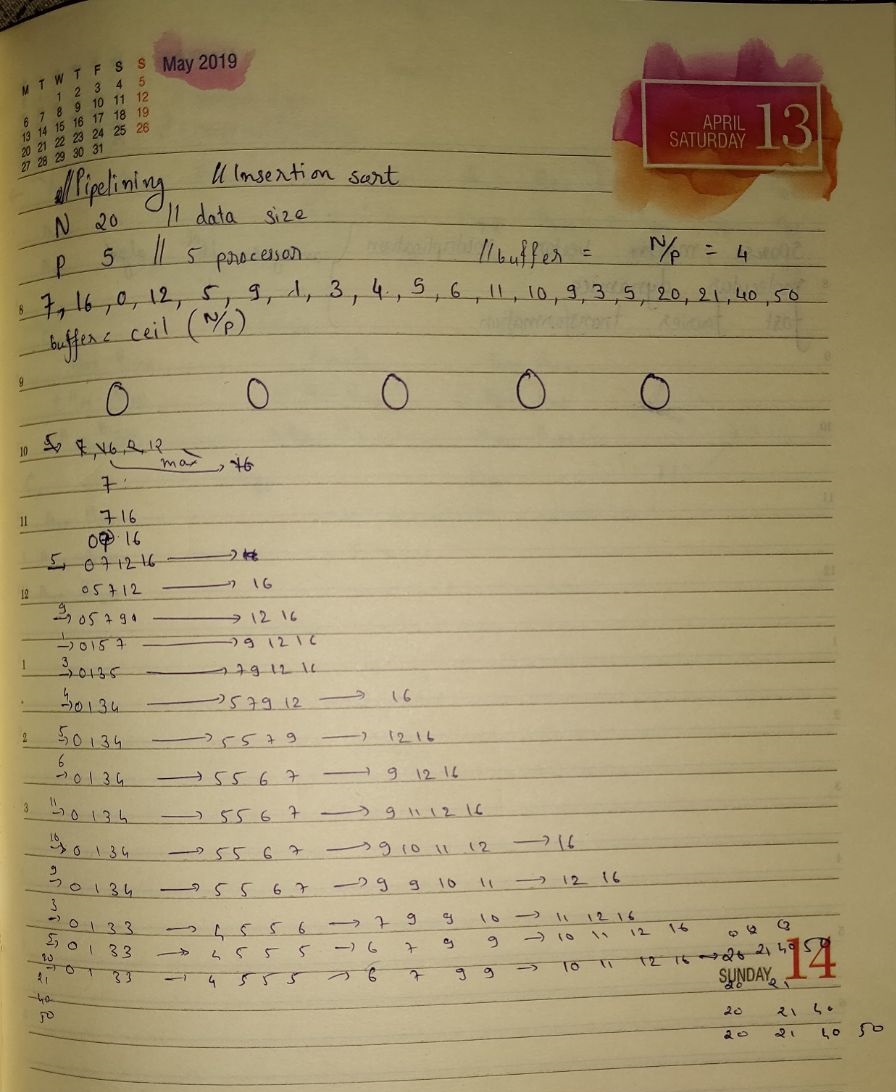 May 2019
M T W T F S S
1 2 3 4 5
6 7 8 9 10 11 12
13 14 15 16 17 18 19
20 21 22 23 24 25 26
27 28 29 30 31
APRIL
SATURDAY 13
//Pipelining // Insertion sort
N 20 // data size
P 5 // 5 processor //buffer = N/p = 4
8 7, 16, 0, 12, 5, 9, 1, 3, 4, 5, 6, 11, 10, 9, 3, 5, 20, 21, 40, 50
buffer = ceil (N/p)
9 0 0 0 0 0
10 7, 16, 2, 12
max 16
7
11 7 16
0 7 16
5, 0 7 12 16 →
12 0 5 7 12 → 16
9 → 0 5 7 9 → 12 16
1 → 0 1 5 7 → 9 12 16
1 3 → 0 1 3 5 → 7 9 12 16
4 → 0 1 3 4 → 5 7 9 12 → 16
2 5 → 0 1 3 4 → 5 5 7 9 → 12 16
6 → 0 1 3 4 → 5 5 6 7 → 9 12 16
3 11 → 0 1 3 4 → 5 5 6 7 → 9 11 12 16
10 → 0 1 3 4 → 5 5 6 7 → 9 10 11 12 → 16
9 → 0 1 3 4 → 5 5 6 7 → 9 9 10 11 → 12 16
3 → 0 1 3 3 → 4 5 5 6 → 7 9 9 10 → 11 12 16
5, 0 1 3 3 → 4 5 5 5 → 6 7 9 9 → 10 11 12 16
20 → 0 1 3 3 → 4 5 5 5 → 6 7 9 9 → 10 11 12 16 → 20 21 40 50
21 20 21
40 20 21 40
50 20 21 40 50
SUNDAY 14